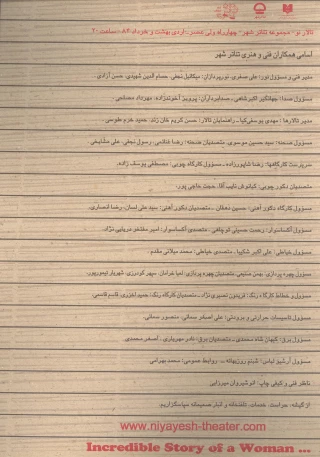 تالار نو - مجموعه تئاتر شهر - چهارراه ولی عصر - اردی بهشت و خرداد ۸۴ - ساعت ۲۰
اسامی همکاران فنی و هنری تئاتر شهر
مدیر فنی و مسؤول نور: علی صفری، نورپردازان: میکائیل نجفی، حسام الدین شهیدی، حسن آزادی
مسؤول صدا: جهانگیر اکبرشاهی، صدابرداران: پرویز آخوندزاده، مهرداد مصلحی
مدیر تالارها: مهدی یوسفی‌کیا، راهنمایان تالار: حسن کریم خان زند، حمید خرم طوسی
مسؤول صحنه: سید حسین موسوی، متصدیان صحنه: رضا رسول نجفی، علی مشایخی
سرپرست کارگاهها: رضا شاپورزاده، مسؤول کارگاه چوبی: مصطفی یوسف زاده
متصدیان دکور چوبی: کیانوش نایب آقا، حجت حاجی پور
مسؤول کارگاه دکور آهنی: حسین دهقان، متصدیان دکور آهنی: سید علی رضا انصاری
مسؤول آکساسوار: رحمت حسینی متصدی آکساسوار: امیر نژاد
مسؤول خیاطی: علی اکبر متصدی خیاطی: محمد میلانی مقدم
مسؤول چهره پردازی: بهمن صنیعی، متصدیان چهره پردازی: سپهر گودرزی، شهریار تیمورپور
مسؤول و خطاط کارگاه رنگ: فریدون نصیری نژاد، متصدیان کارگاه رنگ: حمید قاسم قاسمی
مسؤول تاسیسات حرارتی و برودتی: علی اصغر سمائی، منصور سمائی
مسؤول برق: کیهان شاه محمدی، متصدیان برق: نادر مهریاری، اصغر محمدی
مسؤول آرشیو لباس: شبنم روابط عمومی: محمد بهرامی
ناظر فنی و کیفی چاپ: انوشیروان میرزایی
از گیشه، حراست، خدمات، نقلیه و انبار صمیمانه سپاسگزاریم
www.niyayesh-theater.com
Incredible Story of a Woman ...